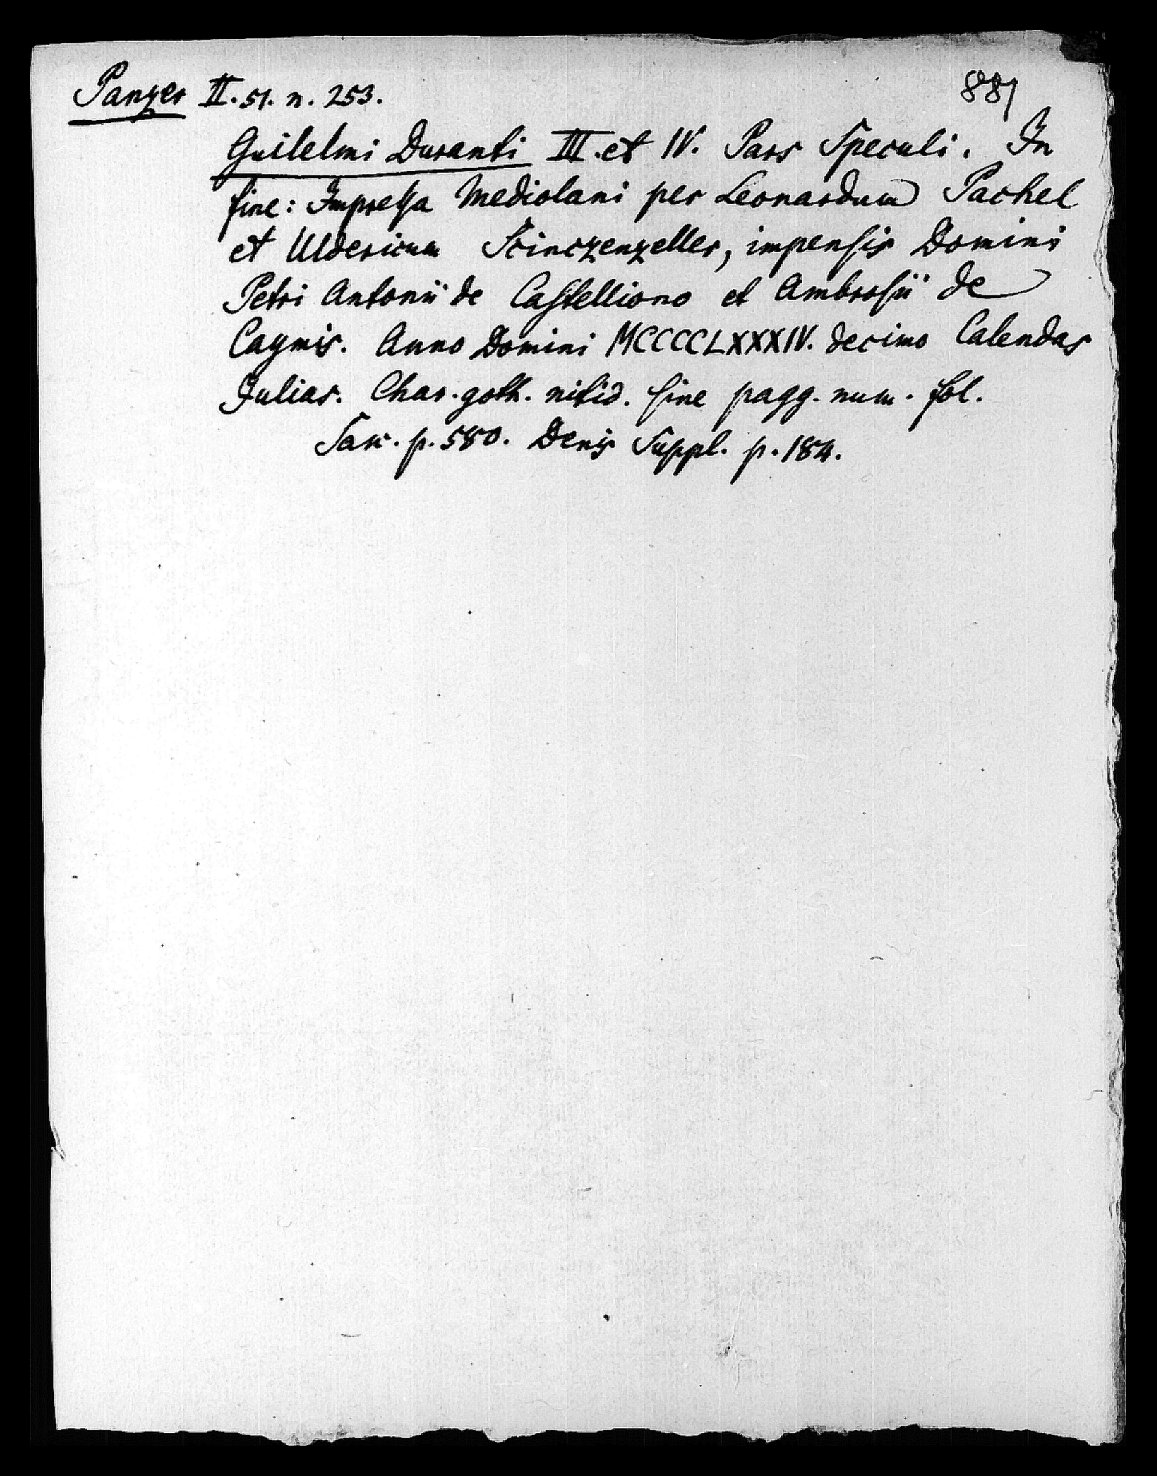 Panzer II. 51. n. 253.
881
Guilelmi Duranti III. et IV. Pars Speculi. In
fine: Impreſſa Mediolani per Leonardum Pachel
et Uldericum Scinczenzeller, impenſis Domini
Petri Antonii de Caſtelliono et Ambroſii de
Caymis. Anno Domini MCCCCLXXXIV. decimo Calendas
Julias. Char. goth. nitid. ſine pagg. num. fol.
Sax. p. 580. Denis Suppl. p. 184.